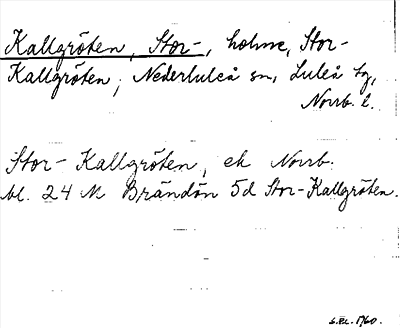 Kallgröten, Stor-, holme, Stor-
Kallgröten, Nederluleå sn, Luleå tg,
Norrb. l.
Stor-Kallgröten, ek Norrb.
bl. 24 M Brändön 5d Stor-Kallgröten.
1960.